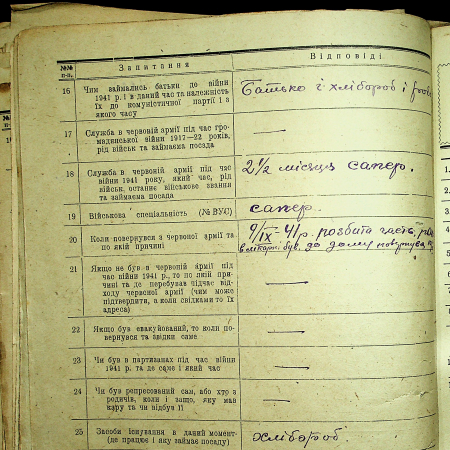 №№ п-п. Запитання Відповіді
16 Чим займались батьки до війни
1941 р. і в даний час та належність
їх до комуністичної партії і з
якого часу
Батько і хлібороб і
17 Служба в червоній армії під час гро-
мадянської війни 1917—22 років,
рід військ та займаєма посада
—
18 Служба в червоній армії під час
війни 1941 року, який час, рід
військ, останнє військове звання
та займаєма посада
2½ місяця сапер.
19 Військова спеціяльність (№ ВУС)
сапер.
20 Коли повернувся з червоної армії та
по якій причині
9/IX- 41 р. розбита часть,
був. до дому
21 Якщо не був в червоній армії під
час війни 1941 р., то по якій при-
чині та де перебував підчас від-
ходу червоної армії (чим може
підтвердити, а коли свідками то їх
адреса)
—
22 Якщо був евакуйований, то коли по-
вернувся та звідки саме
—
23 Чи був в партизанах під час війни
1941 р. та де саме і який час
—
24 Чи був репресований сам, або хто з
родичів, коли і защо, яку мав
кару та чи відбув її
—
25 Засоби існування в даний момент
(де працює і яку займає посаду)
хлібороб.